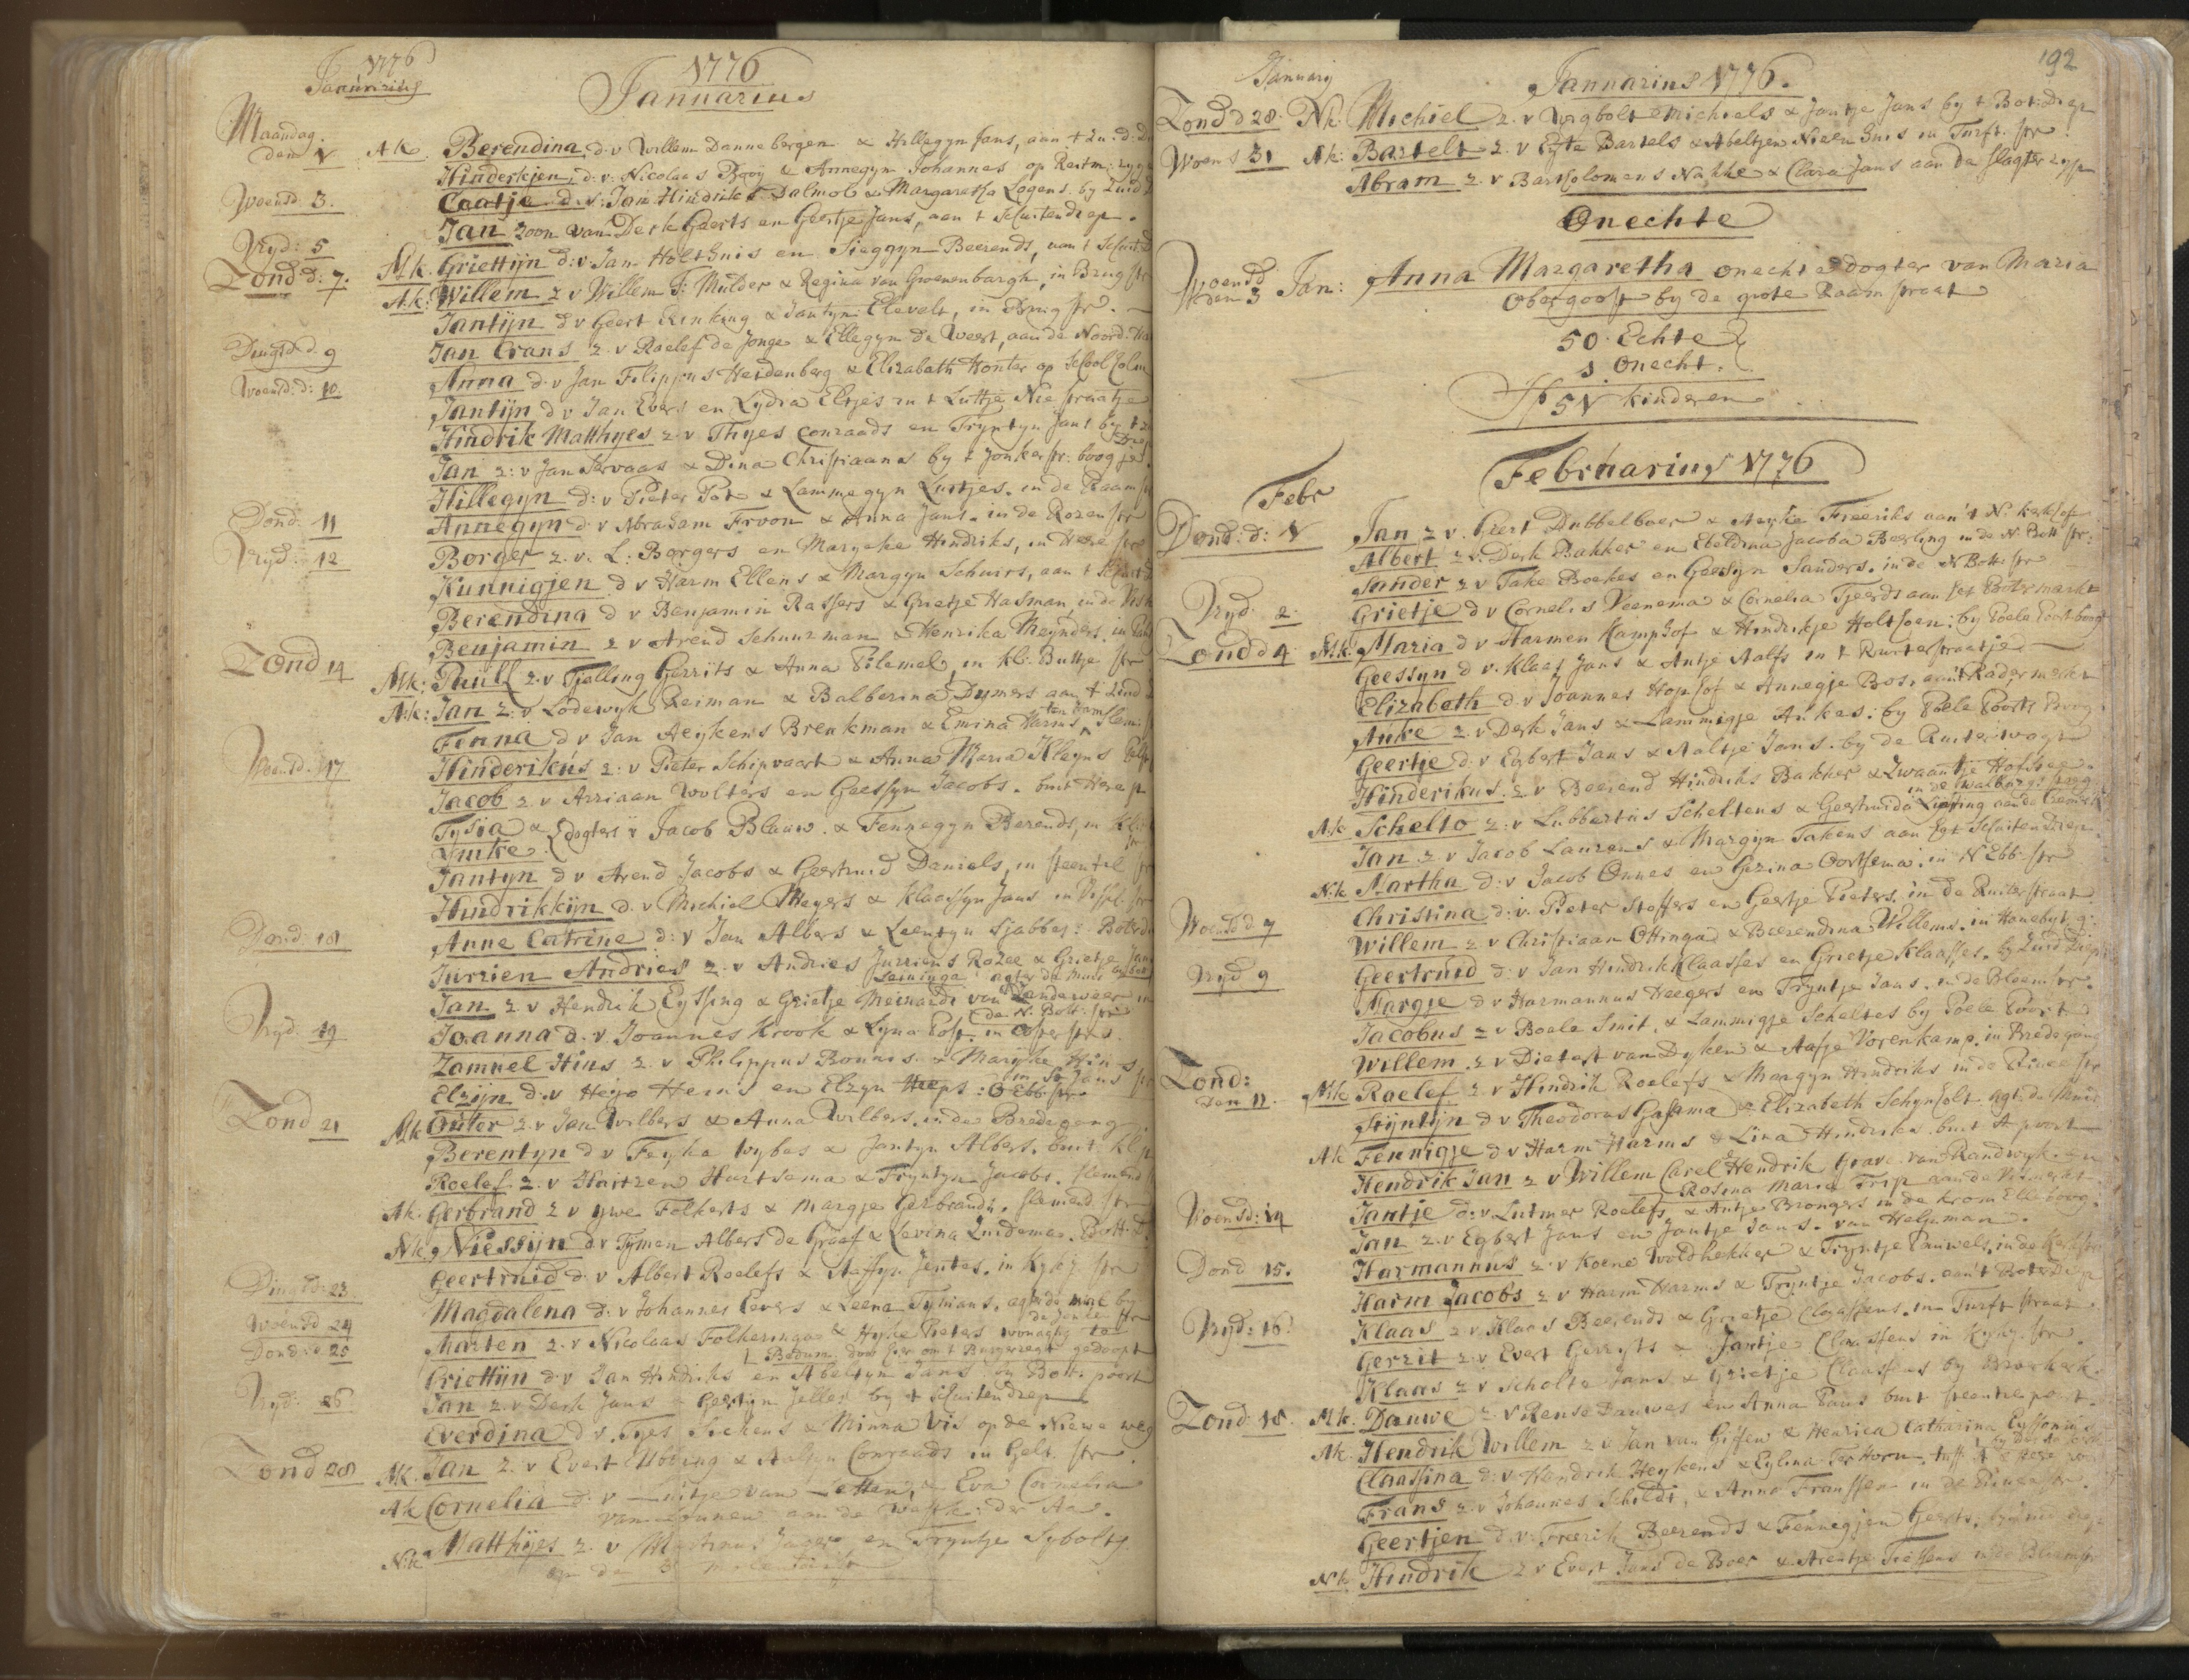 1776
Januarius
1776
Januarius
Maandag
den 1 Ak Berendina d. v Willem Dannebergen & Hillegyn Jans, aan t Zu. d.
Hinderkjen, d. v. Nicolaas Booij & Annegyn Johannes op Reitm.
Woensd. 3. Caatje d. v. Jan Hindriks Dalmolo & Margaretha Logens by Zuid
Jan zoon van Derk Geerts en Geertje Jans, aan t schuitendiep.
Vryd: 5 Griettijn d: v Jan Holthuis en Sieggyn Beerends, aan t Schuit
Zond d: 7. Mk. Willem z v Willem F: Mulder & Regina van Groenenbargh, in Brug str
Ak: Jantijn d v Geert Eenking & Jantyn Clevelt, in Brug str.
Jan Crans z. v Roelef de Jonge & Ellegyn de Weert, aan de Noord
Dingsd. d. 9 Anna d. v Jan Filippus Heidenberg & Elizabeth Konter op School
Woensd. d: 10. Jantijn d v Jan Evers en Lydia Eltjes in t Luttje Nie straatje
Hindrik Matthyes z v Thyes Conraads en Tryntyn Jans by t
Jan z: v Jan Servaas & Dina Christiaans by t Jonkerstr: boogje.
Hillegyn d: v Pieter Pot & Lammegyn Luitjes. in de Raam
Dond. 11 Annegyn d: v Abraham Froon & Anna Jans. in de Rozen str
Vryd: 12 Borger z. v. L: Borgers en Marycke Hindriks, in Heere str
Kunnigjen d v Harm Ellens & Margyn Schuirs, aan t Schuit
Berendina d v Benjamin Rassers & Grietje Hasman, in de Visch
Benjamin z v Arend Schuurman & Henrika Meynders. in
Zond 14 Mk: Paull z. v Tjalling Gerrits & Anna Pilamel, in kl: Buttje str
Ak: Jan z: v Lodewyk Reiman & Balberina Dymers aan t Zuid
Fenna d v Jan Aeykens Brenkman & Emina Harms ten Ham, Slem
Woensd. 17 Hinderikus z: v Pieter Schipvaart & Anna Maria Kleyns
Jacob z v Arriaan Wolters en Geessyn Jacobs. buit Here p
Tysia & } dogters v Jacob Blaauw. & Fennegyn Berends, in kl:
Ymke.
Jantyn d v Arend Jacobs & Geertruid Daniels, in steentil
Hindrikkijn d. v Michiel Meyers & Klaassyn Jans in Vissch. str
Dond: 18 Anne Catrine d: v Jan Albers & Leentyn Sjabbes: Boterd
Jurrien Andries z. v Andries Jurriens Rozee & Grietje Jans
Saininga agter de Muur
Vryd. 19 Jan z v Hendrik Eyssing & Grietje Meinardi van Zanderweer in
de N. Bott: str
Joanna d. v. Joannes Krook & Lyna Post. in Oosterstr.
Zamuel Hins z. v Philippus Bonnis. & Maryke Hins
in St Jans str
Elzijn d: v Heyo Hems en Elzyn Heeps: O Ebb: str.
Zond 21 Mk Outer z v Jan Wilbers & Anna Wilbers, in de Bredegang
Berentyn d v Feyke Wybes & Jantyn Albers. buit. kl p
Roelef z. v Haitzen Huitsema & Tryntyn Jacobs.
Ak. Gerbrand z v Ywe Folkerts & Margje Gerbrands.
Nk. Niessijn d v Tymen Albers de Graaf & Levina Zuidema. Bott: d
Geertruid d: v Albert Roelefs & Aeffyn Jentes. in Kyk j str
Dingsd: 23. Magdalena d. v Johannes Evers & Leena Tymans, agter de muir by
Woensd 24 Marten z. v Nicolaas Folkeringa & Hyke Pieters wonagtig te
Dond. d 25 Bedum, dog hier om t Burgerregt gedoopt
Griettijn d. v Jan Hindriks en Abeltyn Jans by Bott. poort
Vryd: 26. Jan z. v Derk Jans & Geertyn Jelles by t Schuitendiep
Everdina d v. Tyes Siekens & Minna Vis op de Niewe weg
Zond 28 Nk. Jan z. v Evert Ubbing & Aaltyn Conraads in Gelk. str.
Ak Cornelia d. v Luitje van Letten, & Eva Cornelia
van Zonnen aan de Westk: der Aa.
Nk Matthyes z. v Martinus Jager en Tryntje Sybolts
192
January Januarius 1776.
Zond d 28. Nk. Michiel z. v Wigbolt Michiels & Jantje Jans by t Bot: Diep
Woens 31 Ak: Bartelt z. v Eyte Bartels & Abeltjen Nienhuis in Turft. str
Abram z. v Bartholomeus Nakke & Clara Jans aan de slagter zyp
Onechte
Woensd den 3 Jan: Anna Margaretha onechte dogter van Maria
Obergoost by de grote Raamstraat
50. Echte
1 Onecht.
51 kinderen
Februarius 1776
Febr
Dond: d: 1 Jan z v. Geert Dubbelboer & Aeyke Freeriks aan 't N. kerkhof
Albert z. v. Derk Bakker en Ebeldina Jacoba Beerling in de N. Bott str:
Sander z v Take Boekes en Geessyn Sanders. in de N Bott: str
Vryd. 2. Grietje d v Cornelis Veenema & Cornelia Tjeerds aan het Botermarkt
Zond d 4 Mk: Maria d v Harmen Kamphof & Hindrikje Holthoen: by Poele Poortboog
Geessyn d v. Klaas Jans & Antje Aalfs in t Ruiterstraatje
Elizabeth d. v Joannes Hophof & Annegje Bos. aan't Rademerkt
Anke z. v Derk Jans & Lammigje Ankes: by Poele Poorte boog.
Geertje d: v Egbert Jans & Aaltje Jans. by de Ruiterwagt
Hinderikus. z. v Beerend Hindriks Bakker & Zwaantje Hofstee.
in de Swalburgstr:
Ak Schelto z: v Lubbertus Scheltens & Geertruida Lipting aan de
Jan z v Jacob Laurens & Margijn Takens aan het Schuitendiep
N:k Martha d: v Jacob Onnes en Gezina Oortsema. in N Ebb: str
Christina d: v. Pieter Stoffers en Geertje Pieters. in de Ruiterstraat
Woensd d. 7 Willem z v Christiaan Ottinga & Beerendina Willems. in Hanebyt g:
Vryd 9 Geertruid d: v Jan Hindrik Klaasses en Grietje Klaasses. by Zuid Diep
Margje d v Harmannus Heegers en Tryntje Jans. in de Bloemstr.
Jacobus z v Boele Smit. & Lammigje Scheltes by Poele Poort
Willem. z v Dieterst van Dyken & Aafje Vorenkamp. in Bredegang
Zond:
den 11. Mk Roelef z v Hindrik Roelefs & Margyn Hindriks in de Rinee str
Stijntijn d v Theodorus Gastma & Elizabeth Schynholt agt: de Muir
Ak Fennigje d v Harm Harms & Lina Hindriks buit A poort
Hendrik Jan z v Willem Carel Hendrik Grave van Randwyk. en
Rosina Maria Trip aan de Vismerkt
Woensd: 14 Jantje d: v Lutmer Roelefs & Antje Brongers in de Krom Elleboog.
Jan z. v Egbert Jans en Jantje Jans. van Helpman.
Dond. 15. Harmannus z. v Koene Woldhekker & Tryntje Pauwels, in de Kerkstr
Harm Jacobs z v Harm Harms & Tryntje Jacobs. aan't Boterdiep
Vryd: 16. Klaas z v Klaas Beerends & Grietje Claassens. in Turft straat.
Gerrit z. v Evert Gerryts & Jantje Claassens in Kyk j. str.
Klaas z v Scholte Jans & Grietje Claassens by Broerkerk.
Zond. 18. Mk. Dauwe z v Rense Dauwes en Anna Pans buit steentilpoort.
Ak. Hendrik Willem z v Jan van Giffen & Henrica Catharina Eyssonius
Claassina d: v Hendrik Heykens & Eylina Ter Horn.
Frans z. v Johannes Schildt, & Anna Franssen in de
Geertjen d. v. Freerik Beerends & Fennegjen Geerts.
Nk. Hindrik z v Evert Jans de Boer & Arentje